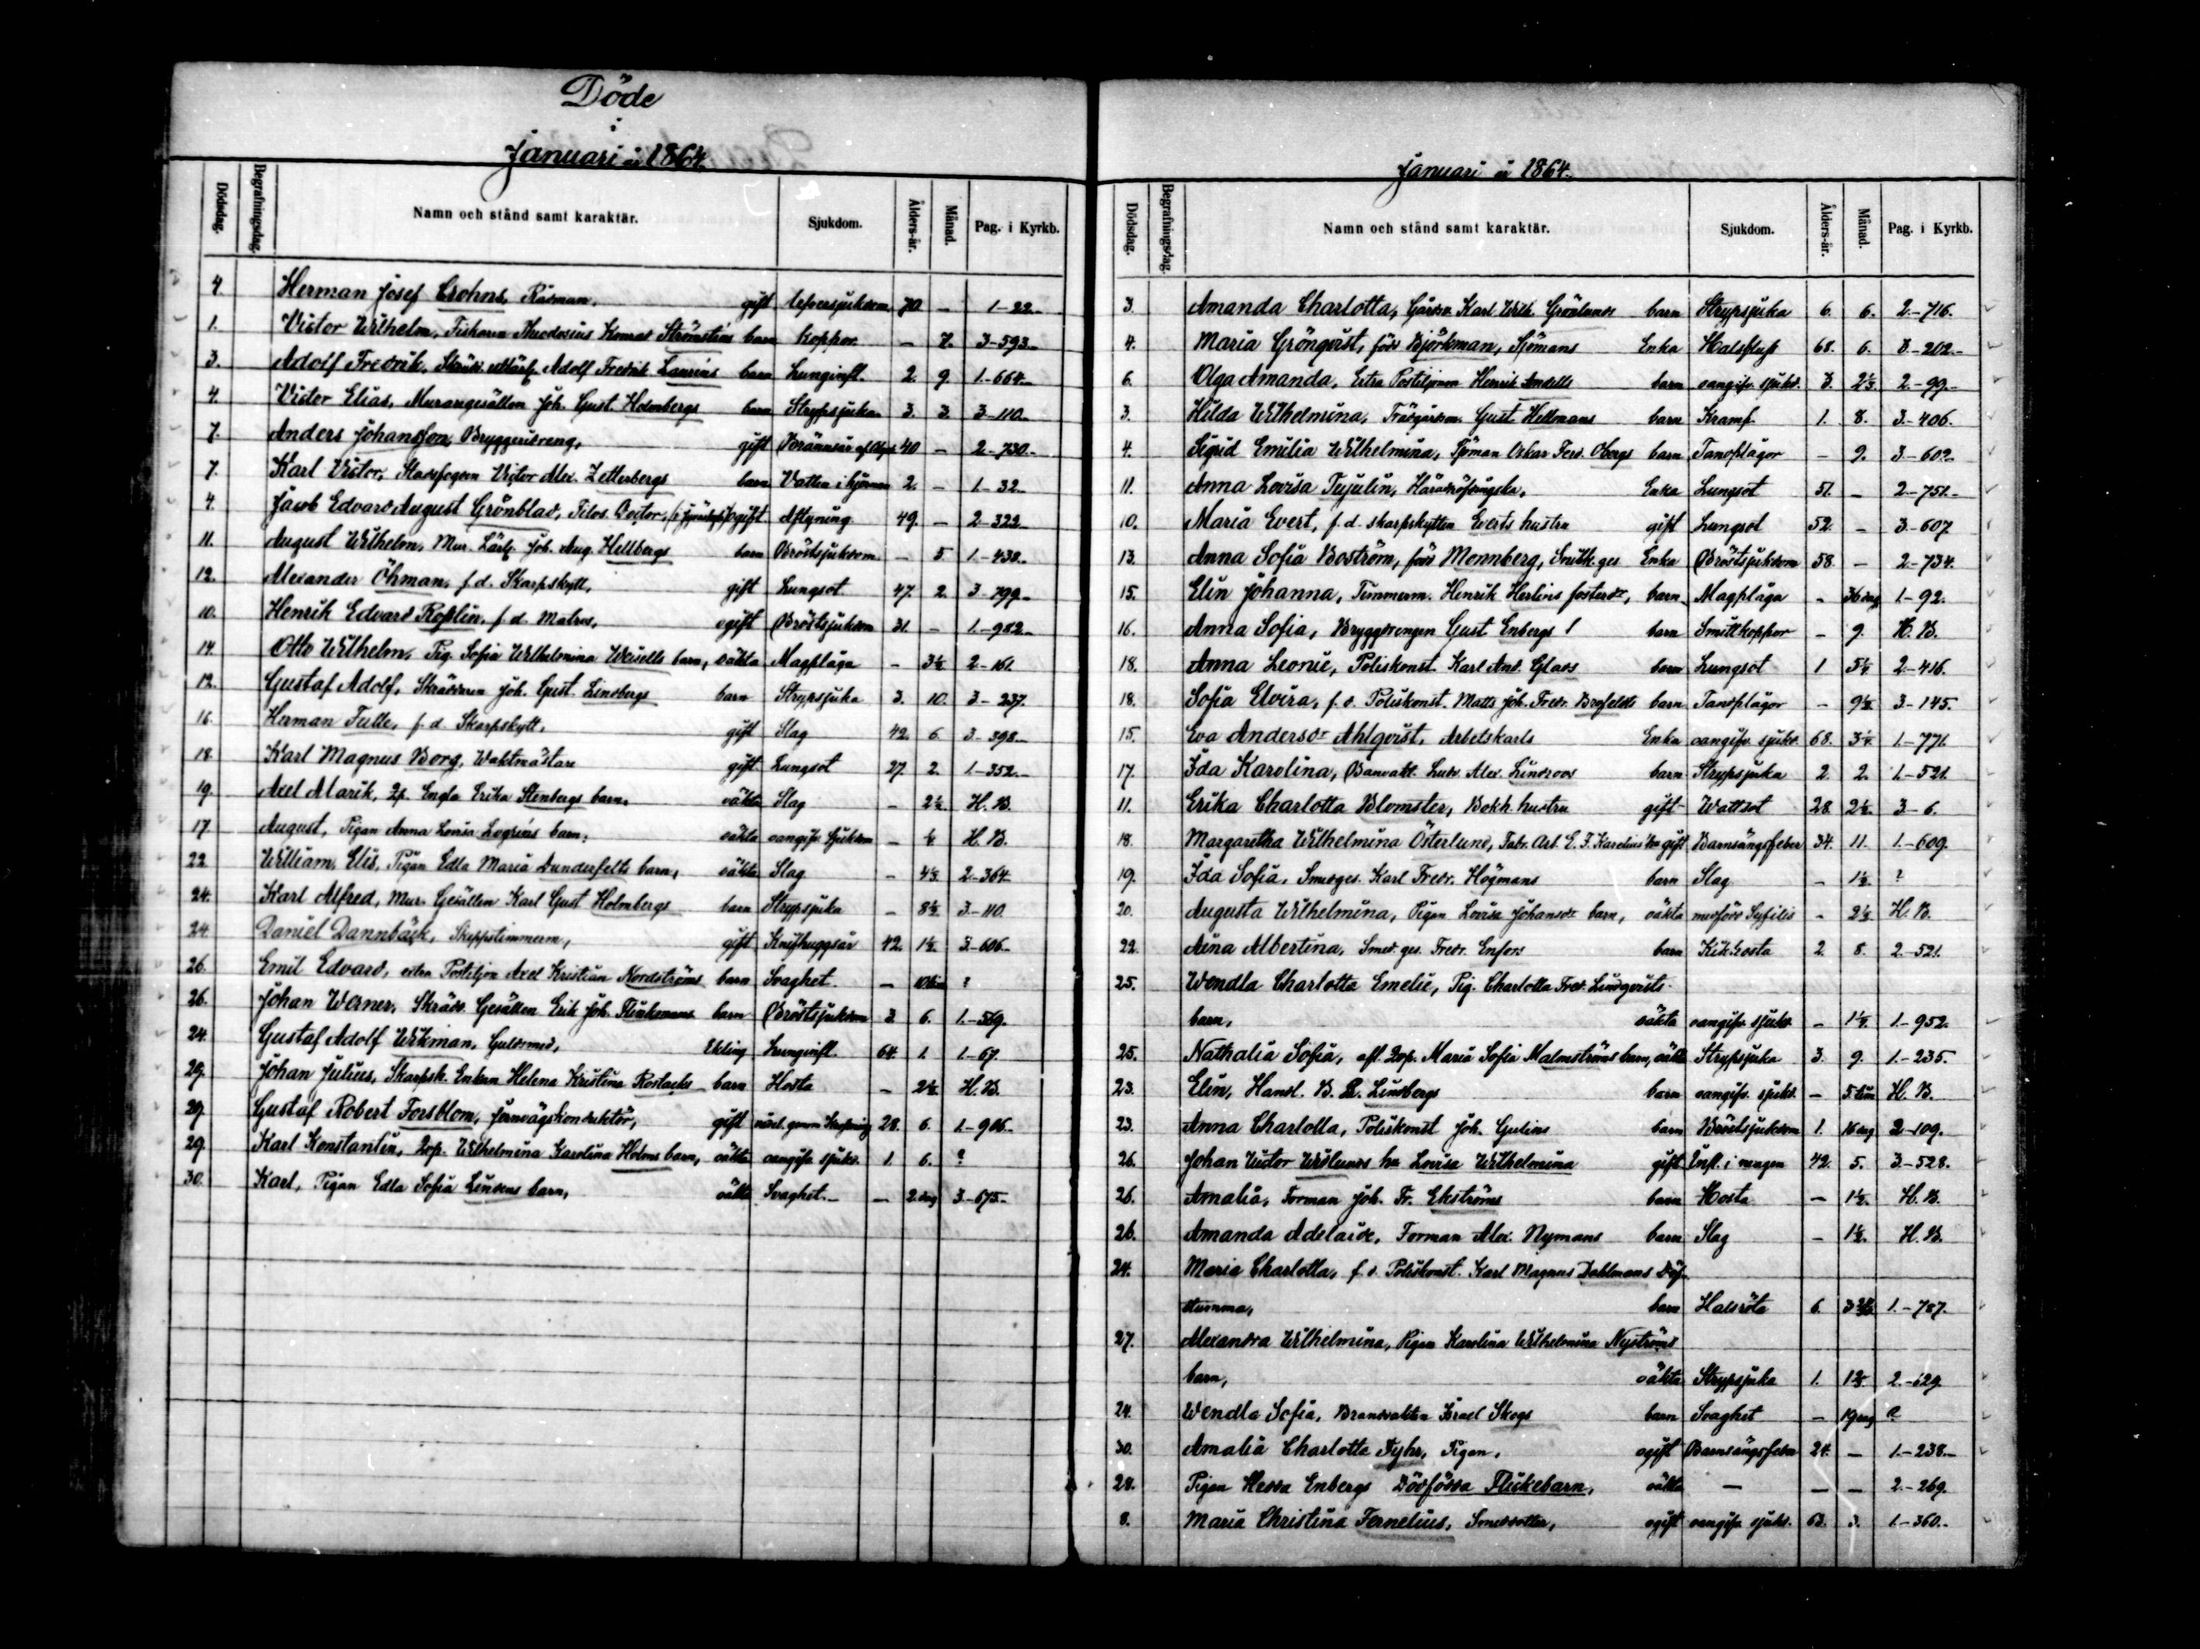 Döde
i
Januari år 1864.
Dödsdag. Begrafningsdag. Namn och stånd samt karaktär. Sjukdom. Ålders-år. Månad. Pag. i Kyrkb.
4. Herman Josef Crohns, Rådman, gift Lefversjukdom. 70 — 1-22.
1. Victor Wilhelm, Fiskaren Konrad Strömstens barn Koppor. — 7. 3-593.
3. Adolf Fredrik, Adolf Fredrik Laurins barn Lunginfl. 2. 9. 1-664.
4. Victor Elias, Muraregesällen Joh. Gust. Holmbergs barn Strypsjuka 3. 3. 3-110.
7. Anders Johansson, Bryggeridreng, gift Brännsår 40 — 2-730.
7. Karl Victor, Stadsfogden Victor Alex. Zetterbergs barn Vatten i hjernan 2. — 1-32.
4. Jacob Edvard August Grönblad, Filos. Doctor, ogift Aftyning 49. — 2-322.
11. August Wilhelm, Mur. Lärl. Joh. Aug. Hellbergs barn Bröstsjukdom — 5 1-438.
12. Alexander Öhman, f.d. Skarpskytt, gift Lungsot 47 2. 3-799.
10. Henrik Edvard Roplin, f.d. Matros, ogift Bröstsjukdom 31. — 1-982.
14. Otto Wilhelm, Pig. Sofia Wilhelmina Weisells barn, oäkta Magplåga — 3½ 2-161.
12. Gustaf Adolf, Skräddaren Joh. Gust. Lindbergs barn Strypsjuka 3. 10. 3-237.
16. Herman Tulle, f.d. Skarpskytt, gift Slag 42. 6. 3-398.
18. Karl Magnus Borg, Waktmästare gift Lungsot 27. 2. 1-352.
19. Axel Marik, Qp. Engla Erika Stenbergs barn, oäkta Slag — 2½ H. B.
17. August, Pigan Anna Lovisa Legréns barn, oäkta oangifv. sjukdom — ¼ H. B.
22. William Elis, Pigan Edla Maria Dunderfelts barn, oäkta Slag — 4⅓ 2-364.
24. Karl Alfred, Mur. Gesällen Karl Gust Holmbergs barn Strypsjuka — 8½ 3-110.
24. Daniel Dannbäck, Skeppstimmerm, gift Knifhuggsår 42. 1½ 3-606.
26. Emil Edvard, extra Postiljon Axel Kristian Nordströms barn Svaghet — 10 ?
26. Johan Werner, Skrädd. Gesällen Erik Joh. Flinkmans barn Bröstsjukdom 3. 6. 1-569.
24. Gustaf Adolf Wikman, Guldsmed, Ekling Lunginfl. 64. 1. 1-67.
29. Johan Julius, Skarpsk. Enkan Helena Kristina Rostacks barn Hosta — 2½ H. B.
27. Gustaf Robert Forsblom, Jernvägskonduktör, gift 28. 6. 1-916.
29. Karl Konstantin, Qvp. Wilhelmina Karolina Holms barn, oäkta oangifv. sjukd. 1. 6. ?
30. Karl, Pigan Edla Sofia Lindens barn, oäkta Svaghet — 2 dag 3-675.
Januari år 1864.
Dödsdag. Begrafningsdag. Namn och stånd samt karaktär. Sjukdom. Ålders-år. Månad. Pag. i Kyrkb.
3. Amanda Charlotta, Gårdsr. Karl Wilh. Grönlunds barn Strypsjuka 6. 6. 2-716.
4. Maria Grönqvist, född Björkman, Sjömans Enka Halsfluss 68. 6. 3-202.
6. Olga Amanda, Extra Postiljonen Henrik Andells barn oangifv. sjukd. 3. 2⅓ 2-99.
3. Hilda Wilhelmina, Trädgårdsm. Gust Hellmans barn Kramf 1. 8. 3-406.
4. Sigrid Emilia Wilhelmina, Sjöman Oskar Ferd. Obergs barn Tandplågor — 9. 3-602.
11. Anna Lovisa Tujulin, Häradshöfdingska, Enka Lungsot 51. — 2-751.
10. Maria Evert, f.d. skarpskytten Everts hustru gift Lungsot 52. — 3-607.
13. Anna Sofia Boström, född Monnberg, Snick. ges Enka Bröstsjukdom 58. — 2-734.
15. Elin Johanna, Timmerm. Henrik Herlins fosterdr, barn Magplåga — 36 dag 1-92.
16. Anna Sofia, Bryggdrengen Gust Enbergs barn Smittkoppor — 9. H. B.
18. Anna Leonie, Poliskonst. Karl And. Glads barn Lungsot 1 5¼ 2-416.
18. Sofia Elvira, f.d. Poliskonst. Matts Joh. Fredr. Brofeldts barn Tandplågor — 9½ 3-145.
15. Eva Andersdr Ahlqvist, Arbetskarls Enka oangifv. sjukd. 68. 3¼ 1-771.
17. Ida Karolina, Banvakt. Ludv. Alex. Lindroos barn Strypsjuka 2. 2. 1-521.
11. Erika Charlotta Blomster, Bokh. hustru gift Wattsot 28. 2½ 3-6.
18. Margaretha Wilhelmina Österlund, Fabr. Arb. E. F. Karelius' hu gift Barnsängsfeber 34. 11. 1-609.
19. Ida Sofia, Smedges. Karl Fredr. Högmans barn Slag — 1½ ?
20. Augusta Wilhelmina, Pigan Lovisa Johansdr barn, oäkta medfödd Syfilis — 2½ H. B.
22. Aina Albertina, Smed. ges. Fredr. Enfors barn Kikhosta 2. 8. 2-521.
25. Wendla Charlotta Emelie, Pig. Charlotta Fred. Lindqvists
barn, oäkta oangifv. sjukd. — 1¼ 1-952.
25. Nathalia Sofia, afl. Qvp. Maria Sofia Malmströms barn, oäkta Strypsjuka 3. 9. 1-235.
23. Elin, Handl. B. R. Lindbergs barn oangifv. sjukd. — 5 tim H. B.
23. Anna Charlotta, Poliskonst Joh. Gulins barn Bröstsjukdom 1. 16 dag 2-109.
26. Johan Victor Widlunds hu Lovisa Wilhelmina gift Infl. i magen 42. 5. 3-528.
26. Amalia, Forman Joh. Fr. Ekströms barn Hosta — 1½ H. B.
26. Amanda Adelaide, Forman Alex. Nymans barn Slag — 1½ H. B.
24. Maria Charlotta, f.d. Poliskonst. Karl Magnus Dahlmans Döf-
stumma, barn Halsröta 6. 1-787.
27. Alexandra Wilhelmina, Pigan Karolina Wilhelmina Nyströms
barn, oäkta Strypsjuka 1. 1⅔ 2-629.
24. Wendla Sofia, Brandvakten Israel Skogs barn Svaghet — 19 dag ?
30. Amalia Charlotta Fyhr, Pigan, ogift Barnsängsfeber 24. — 1-238.
28. Pigan Hedda Enbergs Dödfödda Flickebarn, oäkta — — — 2-269.
8. Maria Christina Fernelius, Smedsdotter, ogift oangifv. sjukd. 63. 3. 1-360.